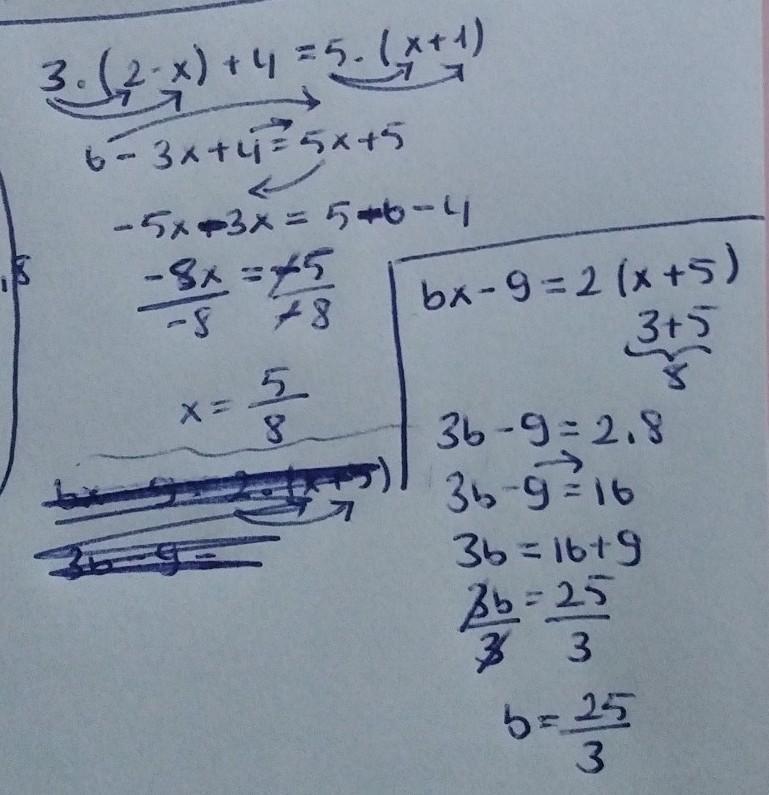 3.(2-x)+4=5.(x+1)
6-3x+4=5x+5
-5x-3x=5-6-4
-8x/-8 = -5/-8
x=5/8
bx-9=2.(x+5)
3b-9=
bx-9=2(x+5)
3+5
8
3b-9=2.8
3b-9=16
3b=16+9
3b/3=25/3
b=25/3